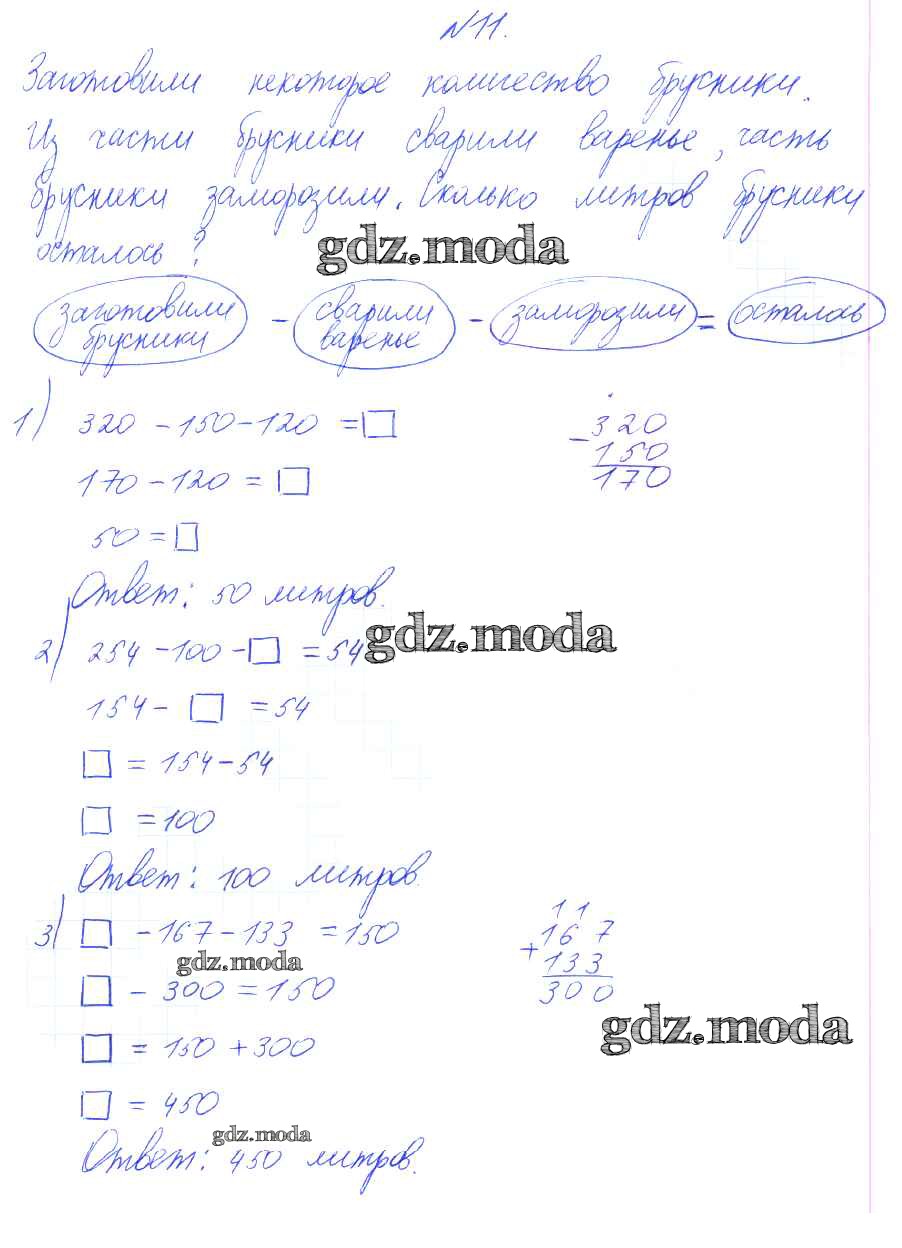 №11.
Заготовили некоторое количество брусники.
Из части брусники сварили варенье, часть
брусники заморозили. Сколько литров брусники
осталось?
gdz.moda
заготовили брусники - сварили варенье - заморозили = осталось
1) 320 - 150 - 120 = □
170 - 120 = □
50 = □
- 320
150
170
Ответ: 50 литров.
gdz.moda
2) 254 - 100 - □ = 54
154 - □ = 54
□ = 154 - 54
□ = 100
Ответ: 100 литров.
3) □ - 167 - 133 = 150
gdz.moda
□ - 300 = 150
□ = 150 + 300
□ = 450
11
+ 167
133
300
gdz.moda
gdz.moda
Ответ: 450 литров.